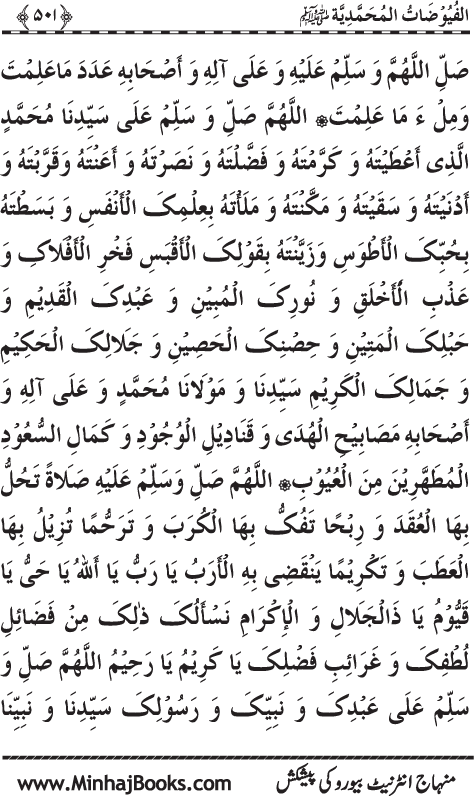 الفُيُوْضَاتُ المُحَمَّدِيَّة ﷺ ﴿۵۰۱﴾
صَلِّ اللَّهُمَّ وَ سَلِّمْ عَلَيْهِ وَ عَلَى آلِهِ وَ أَصْحَابِهِ عَدَدَ مَاعَلِمْتَ
وَمِلْءَ مَا عَلِمْتَ۞ اللَّهُمَّ صَلِّ وَ سَلِّمْ عَلَى سَيِّدِنَا مُحَمَّدٍ
الَّذِى أَعْطَيْتَهُ وَ كَرَّمْتَهُ وَ فَضَّلْتَهُ وَ نَصَرْتَهُ وَ أَعَنْتَهُ وَقَرَّبْتَهُ وَ
أَدْنَيْتَهُ وَ سَقَيْتَهُ وَ مَكَّنْتَهُ وَ مَلَأْتَهُ بِعِلْمِکَ الْأَنْفَسِ وَ بَسَطْتَهُ
بِحُبِّکَ الْأَطْوَسِ وَزَيَّنْتَهُ بِقَوْلِکَ الْأَقْبَسِ فَخْرِ الْأَفْلَاکِ وَ
عَذْبِ الْأَخْلَقِ وَ نُورِکَ الْمُبِيْنِ وَ عَبْدِکَ الْقَدِيْمِ وَ
حَبْلِکَ الْمَتِيْنِ وَ حِصْنِکَ الْحَصِيْنِ وَ جَلَالِکَ الْحَكِيْمِ
وَ جَمَالِکَ الْكَرِيْمِ سَيِّدِنَا وَ مَوْلَانَا مُحَمَّدٍ وَ عَلَى آلِهِ وَ
أَصْحَابِهِ مَصَابِيْحِ الْهُدَى وَ قَنَادِيْلِ الْوُجُوْدِ وَ كَمَالِ السُّعُوْدِ
الْمُطَهَّرِيْنَ مِنَ الْعُيُوْبِ۞ اللَّهُمَّ صَلِّ وَسَلِّمْ عَلَيْهِ صَلَاةً تَحُلُّ
بِهَا الْعُقَدَ وَ رِبْحًا تَفُکُّ بِهَا الْكُرَبَ وَ تَرَحُّمًا تُزِيْلُ بِهَا
الْعَطَبَ وَ تَكْرِيْمًا يَنْقَضِى بِهِ الْأَرَبُ يَا رَبُّ يَا أَللهُ يَا حَىُّ يَا
قَيُّوْمُ يَا ذَالْجَلَالِ وَ الْإِكْرَامِ نَسْأَلُکَ ذٰلِکَ مِنْ فَضَائِلِ
لُطْفِکَ وَ غَرَائِبِ فَضْلِکَ يَا كَرِيْمُ يَا رَحِيْمُ اللَّهُمَّ صَلِّ وَ
سَلِّمْ عَلَى عَبْدِکَ وَ نَبِيِّکَ وَ رَسُوْلِکَ سَيِّدِنَا وَ نَبِيِّنَا
منہاج انٹرنیٹ بیورو کی پیشکش www.MinhajBooks.com